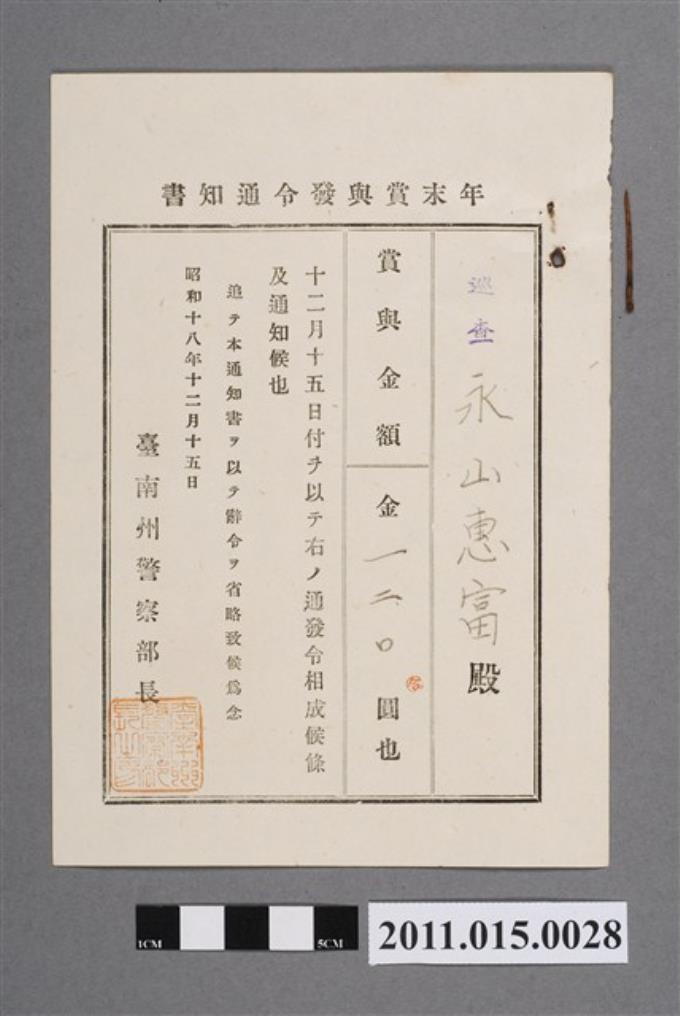 年末賞與發令通知書
巡查 永山惠富殿
賞與金額 金一二〇圓也
十二月十五日付ヲ以テ右ノ通發令相成候條
及通知候也
追テ本通知書ヲ以テ辭令ヲ省略致候爲念
昭和十八年十二月十五日
臺南州警察部長
臺南州警察部長之印
1CM
5CM
2011.015.0028